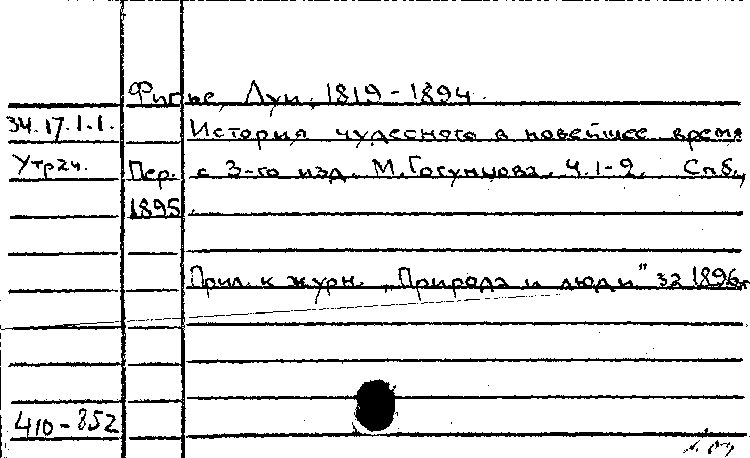 Фигье, Луи, 1819-1894.
34.17.1.1. История чудесного в новейшее время
Утрач. Пер. с 3-го изд. М. Ч.1-2. Спб.,
1895.
Прил. к журн. „Природа и люди" за 1896г.
410-852